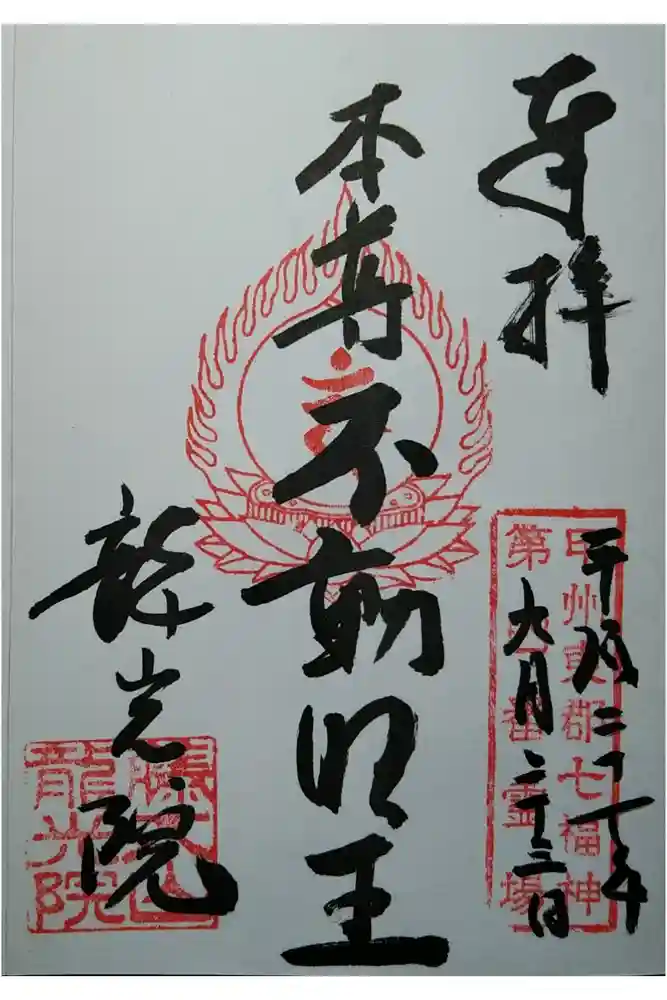 奉拝
甲州東郡七福神
第番霊場
平成二十年
九月二十三日
本尊不動明王
龍光院
龍光院